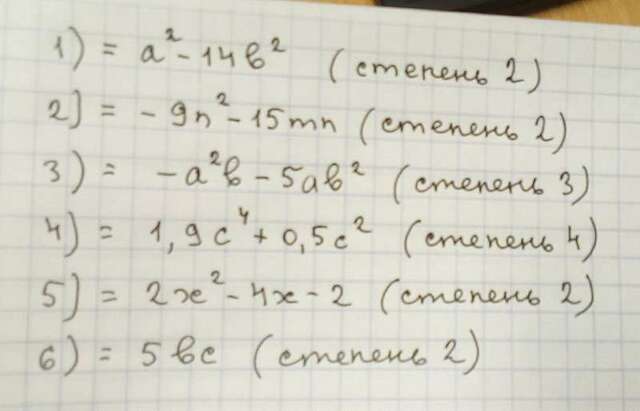 1) = a² - 14b² (степень 2)
2) = - 9n² - 15mn (степень 2)
3) = -a²b - 5ab² (степень 3)
4) = 1,9c⁴ + 0,5c² (степень 4)
5) = 2x² - 4x - 2 (степень 2)
6) = 5bc (степень 2)